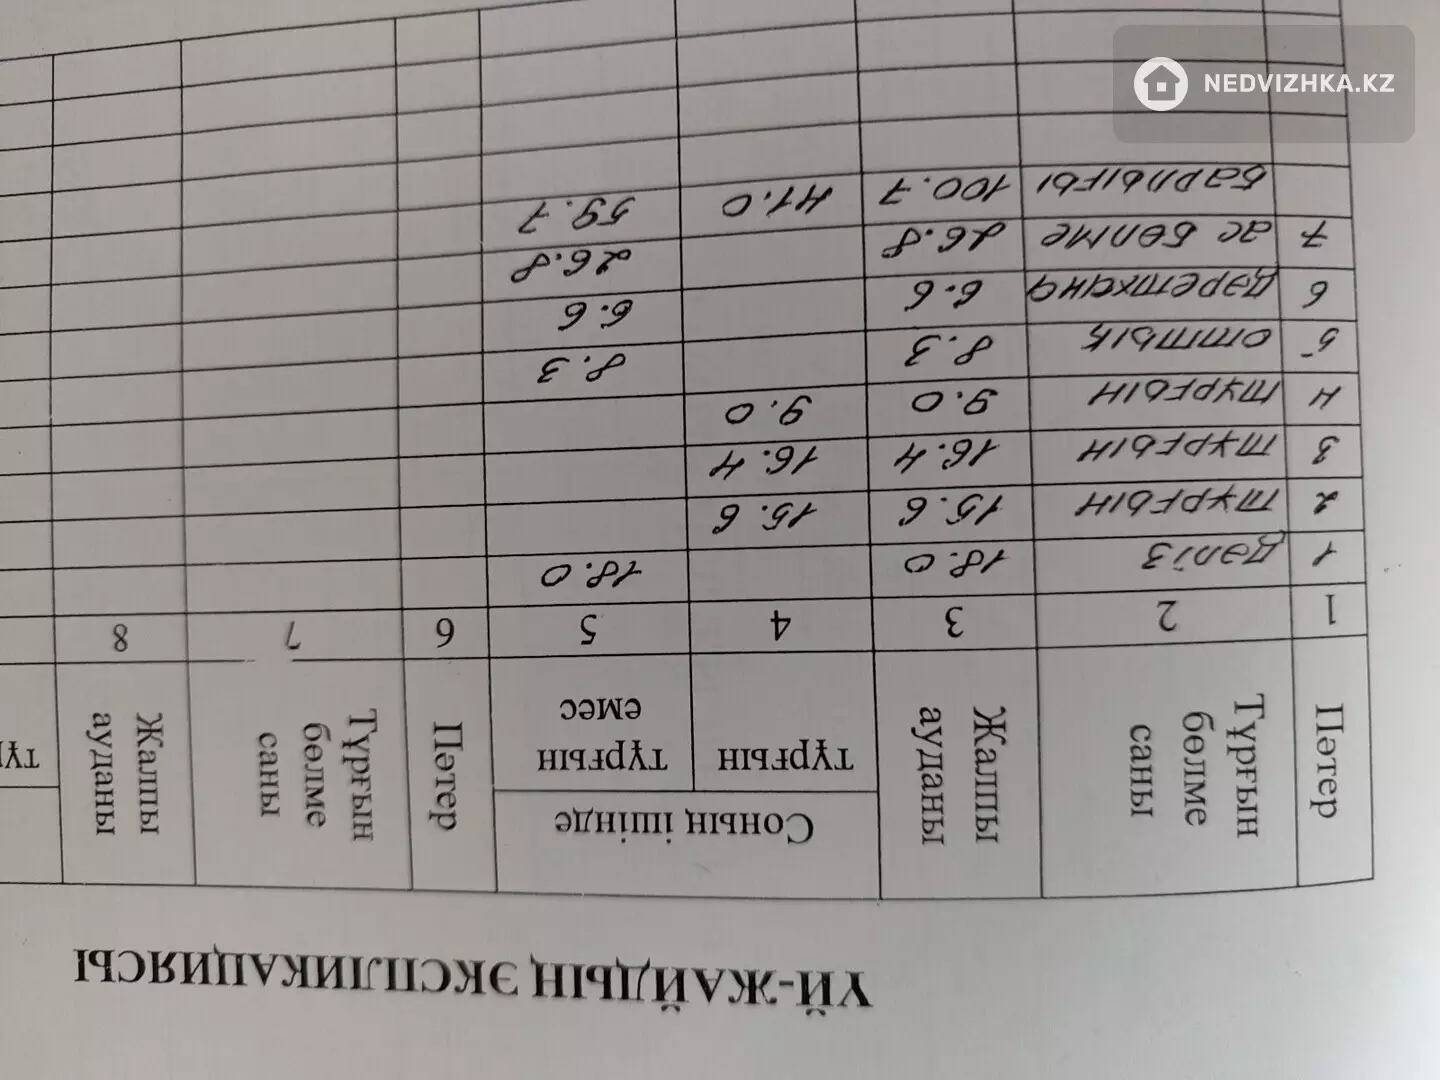 NEDVIZHKA.KZ
ҮЙ-ЖАЙДЫҢ ЭКСПЛИКАЦИЯСЫ
Пәтер Тұрғын бөлме саны Жалпы ауданы Соның ішінде Пәтер Тұрғын бөлме саны Жалпы ауданы
тұрғын тұрғын емес
1 2 3 4 5 6 7 8
1 дәліз 18.0 18.0
2 тұрғын 15.6 15.6
3 тұрғын 16.4 16.4
4 тұрғын 9.0 9.0
5 оттық 8.3 8.3
6 дәретхана 6.6 6.6
7 ас бөлме 26.8 26.8
барлығы 100.7 41.0 59.7